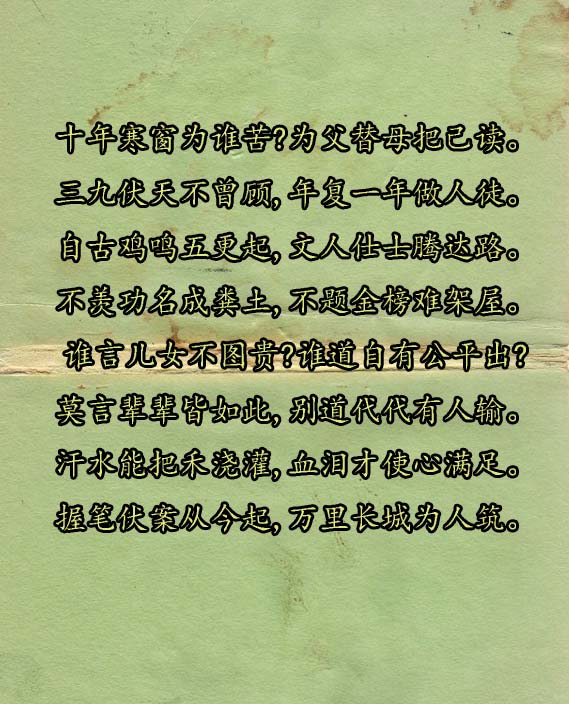 十年寒窗为谁苦?为父替母把己读。
三九伏天不曾顾,年复一年做人徒。
自古鸡鸣五更起,文人仕士腾达路。
不羡功名成粪土,不题金榜难架屋。
谁言儿女不图贵?谁道自有公平出?
莫言辈辈皆如此,别道代代有人输。
汗水能把禾浇灌,血泪才使心满足。
握笔伏案从今起,万里长城为人筑。